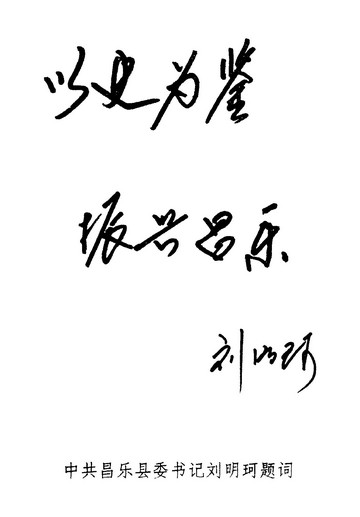 以史为鉴
振兴昌乐
刘明珂
中共昌乐县委书记刘明珂题词